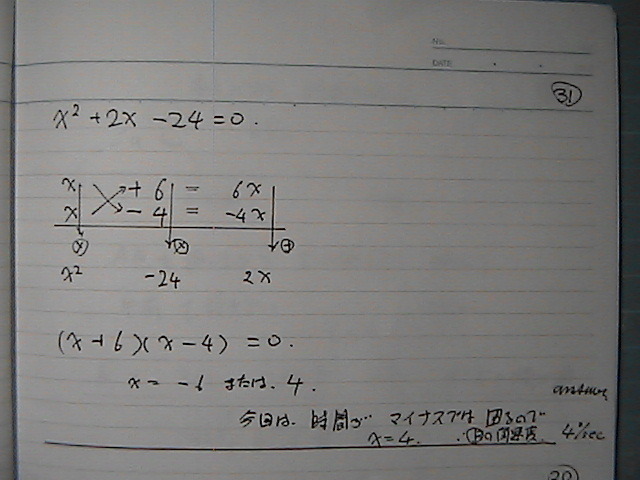 No.
DATE
31
x² + 2x - 24 = 0.
x + 6 = 6x
x - 4 = -4x
× × +
x² -24 2x
(x + 6)(x - 4) = 0.
x = -6 または 4.
answer
今回は、時間が マイナスでは 困るので
x = 4.
4°/sec